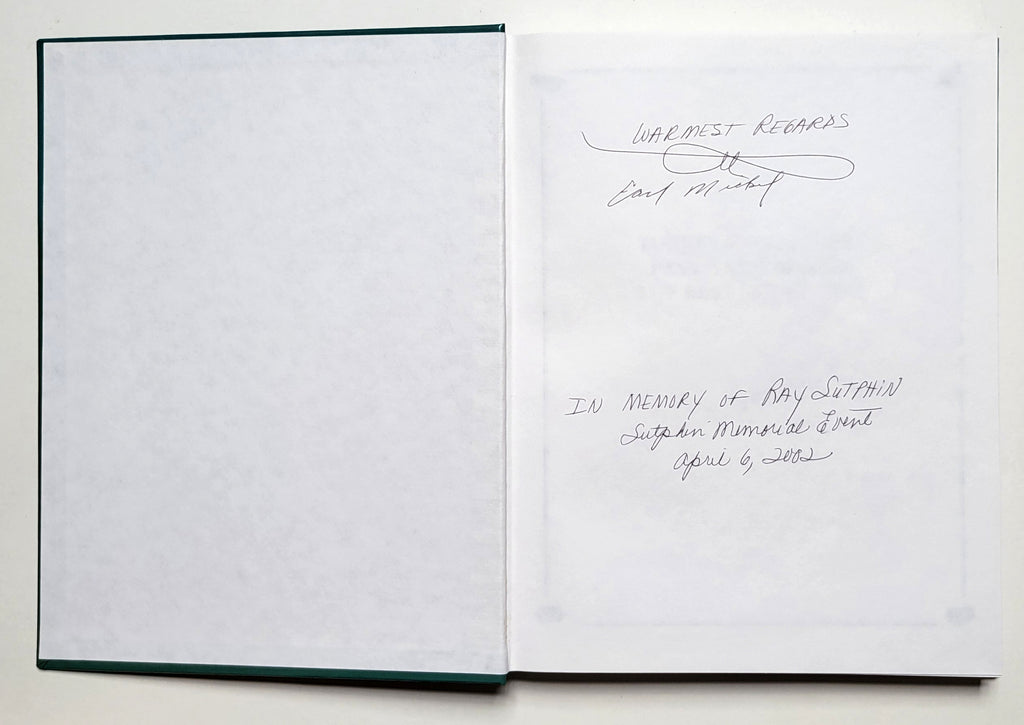 WARMEST REGARDS
Earl
IN MEMORY OF RAY SUTPHIN
Sutphin Memorial Event
April 6, 2002